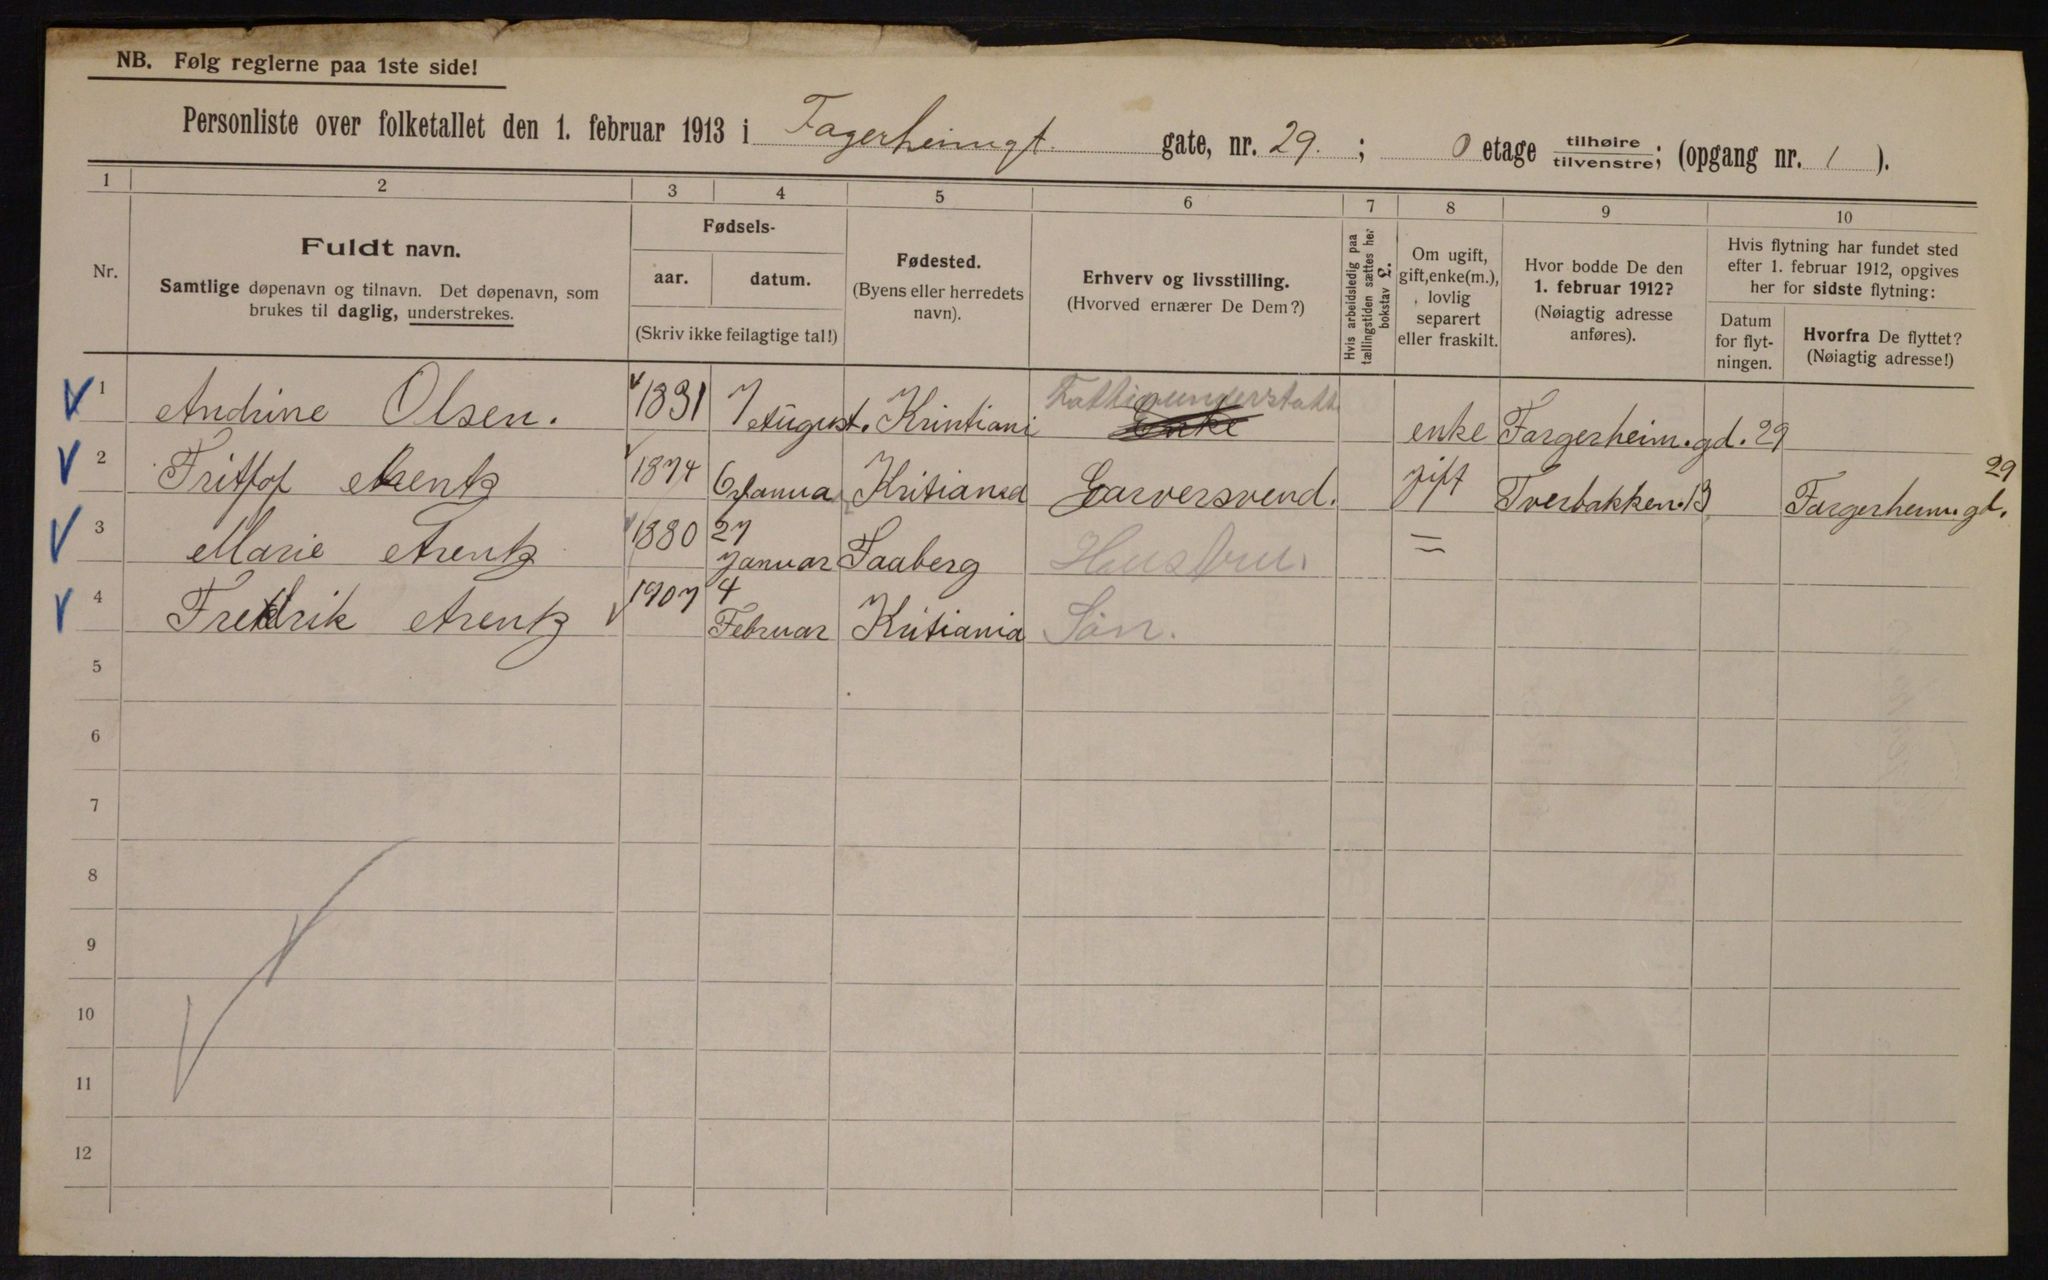 NB. Følg reglerne paa 1ste side!
Personliste over folketallet den 1. februar 1913 i Fagerheimgt. gate, nr. 29. ; 0 etage tilhøire/tilvenstre; (opgang nr. 1 ).
1 2 3 4 5 6 7 8 9 10
Nr.
Fuldt navn.
Samtlige døpenavn og tilnavn. Det døpenavn, som
brukes til daglig, understrekes.
Fødsels-
aar. datum.
(Skriv ikke feilagtige tal!)
Fødested.
(Byens eller herredets
navn).
Erhverv og livsstilling.
(Hvorved ernærer De Dem?)
Hvis arbeidsledig paa
tællingstiden sættes her
bokstav L.
Om ugift,
gift, enke(m.),
lovlig
separert
eller fraskilt.
Hvor bodde De den
1. februar 1912?
(Nøiagtig adresse
anføres).
Hvis flytning har fundet sted
efter 1. februar 1912, opgives
her for sidste flytning:
Datum
for flyt-
ningen.
Hvorfra De flyttet?
(Nøiagtig adresse!)
1 Andrine Olsen. 1831 7 August. Krintiani Fattigunderstøtt Enke enke Fargerheim.gd. 29
2 Fritjof Arentz 1874 6 Janua Kritiania Garversvend. gift Tverbakken. 13 Fargerheim.gd. 29
3 Marie Arentz 1880 27 Januar Faaberg Hustru. =
4 Fredrik Arentz 1907 4 Februar Kritiania Søn.
5
6
7
8
9
10
11
12